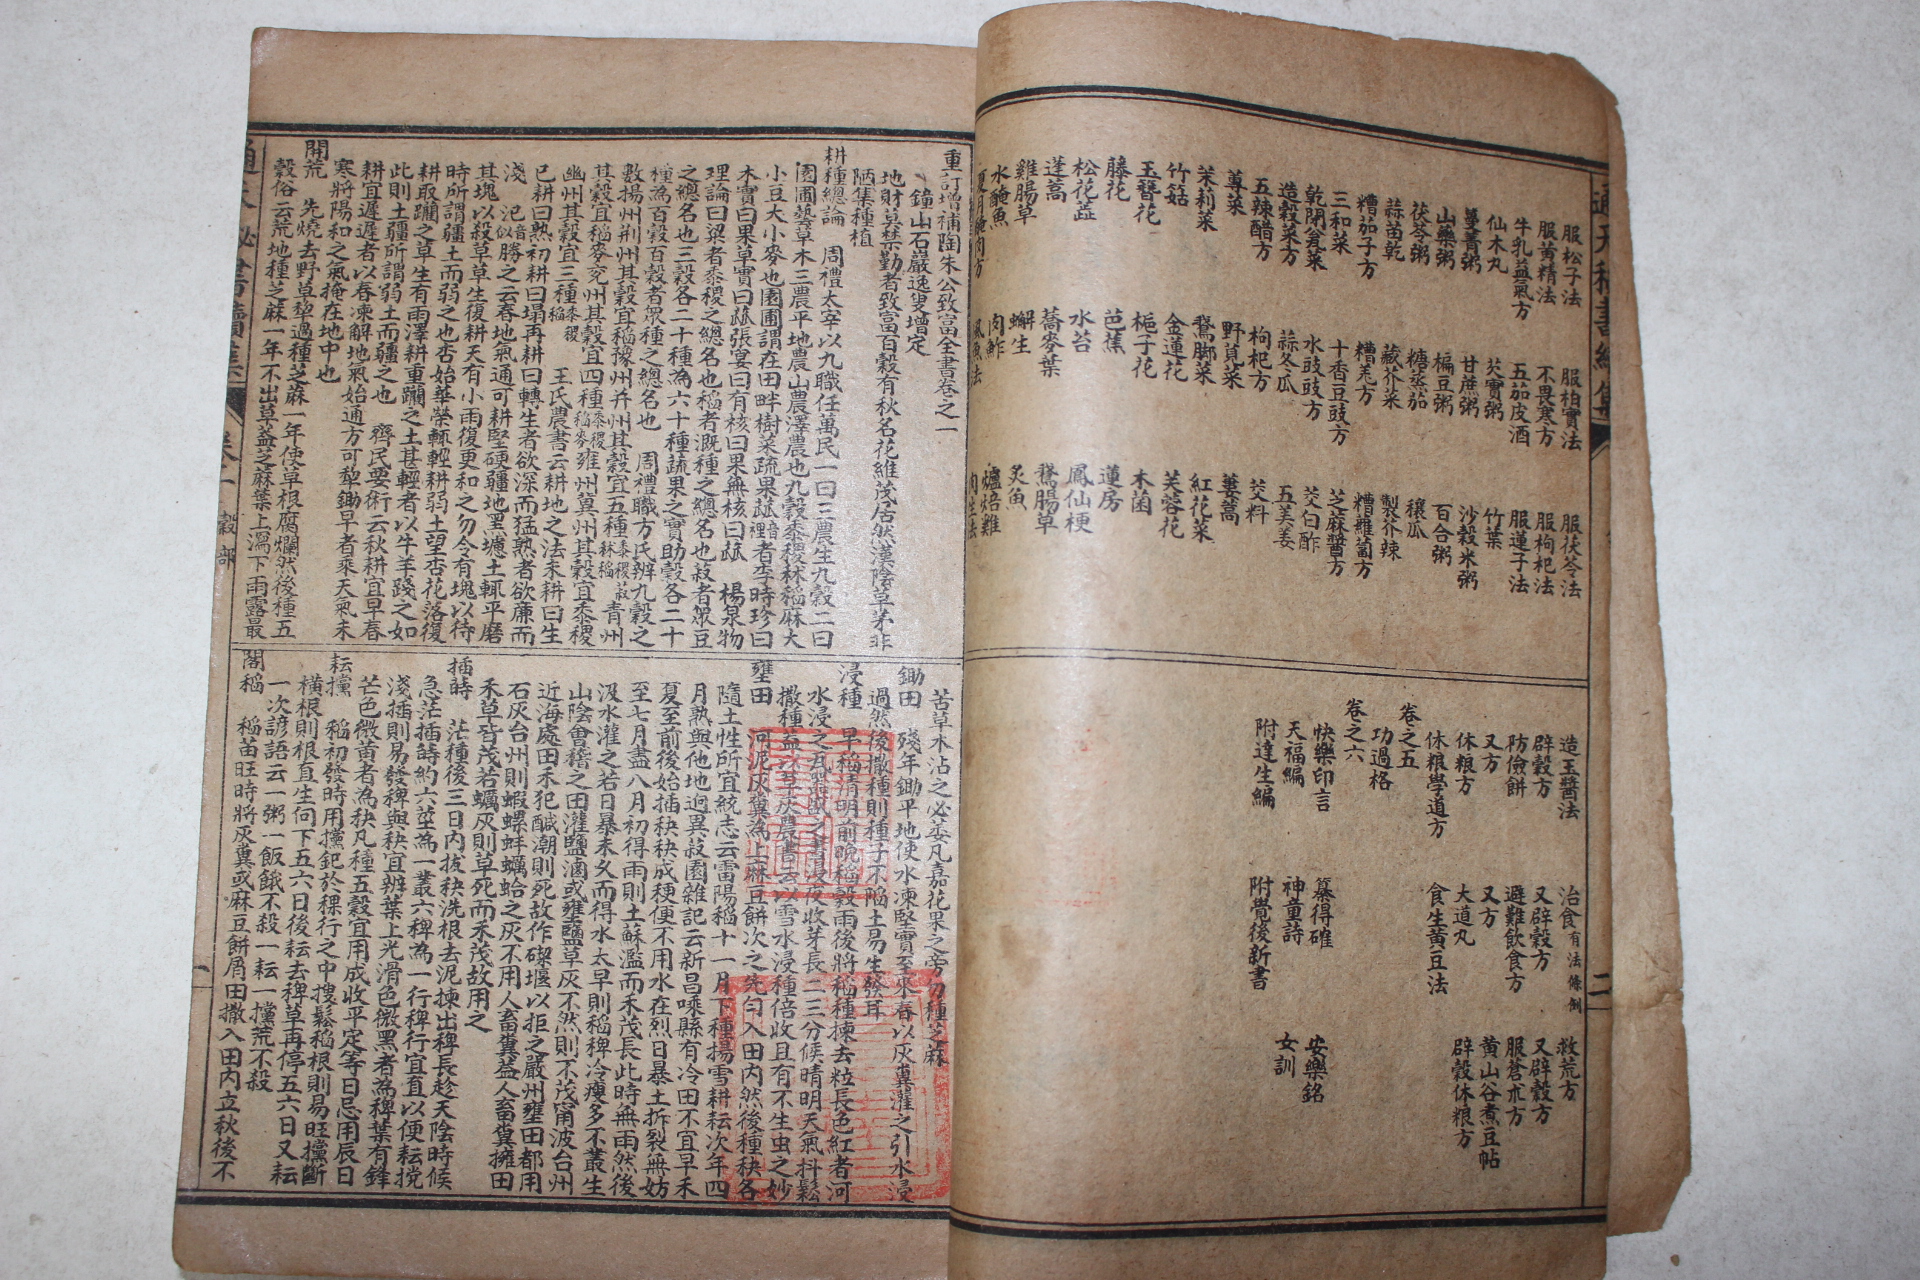 服松子法 服柏實法 服茯苓法
服黃精法 不畏寒方 服枸杞法
牛乳益氣方 五茄皮酒 服蓮子法
仙木丸 芡實粥 竹葉
蔓菁粥 甘蔗粥 沙穀米粥
山藥粥 楄豆粥 百合粥
茯苓粥 糖蒸茄 穰瓜
蒜苗乾 藏芥菜 製芥辣
糟茄子方 糟羌方 糟蘿蔔方
三和菜 十香豆豉方 芝麻醬方
乾閉瓮菜 水豉豉方 茭白酢
造穀菜方 蒜冬瓜 五美姜
五辣醋方 枸杞方 茭料
蓴菜 野莧菜 蔞蒿
茉莉菜 鵞腳菜 紅花菜
竹菇 金蓮花 芙蓉花
玉簪花 梔子花 木菌
藤花 芭蕉 蓮房
松花蕋 水苔 鳳仙梗
蓬蒿 蕎麥葉 鵞腸草
雞腸草 蠏生 炙魚
水醃魚 肉鮓 爐焙雞
造玉醬法 治食有法條例 救荒方
辟穀方 又辟穀方 又辟穀方
防儉餅 避難飲食方 服蒼朮方
又方 又方 黄山谷煮豆帖
休粮方 大道丸 辟穀休粮方
休粮學道方 食生黄豆法
卷之五
功過格
卷之六
快樂印言 纂得確 安樂銘
天福編 神童詩 女訓
附達生編 附覺後新書
重訂增補陶朱公致富全書卷之一
鐘山石巖逸叟增定
地財莫禁勤者致富百穀有秋名花維茂居然漢陰草茅非
陋集種植
耕種總論 周禮太宰以九職任萬民一曰三農生九穀二曰
園圃藝草木三農平地農山農澤農也九穀黍稷秫稻麻大
小豆大小麥也園圃謂在田畔樹菜疏果蓏音裡者李時珍曰
木實曰果草實曰蓏張宴曰有核曰果無核曰蓏 楊泉物
理論曰梁者黍稷之總名也稻者溉種之總名也菽者眾豆
之總名也三穀各二十種為六十種蔬果之實助穀各二十
種為百穀百穀者眾種之總名也 周禮職方氏辨九穀之
數揚州荊州其穀宜稻豫州并州其穀宜五種黍稷菽秫稻青州
其穀宜稻麥兖州其穀宜四種黍稷稻麥雍州冀州其穀宜黍稷
幽州其穀宜三種黍稷稻 王氏農書云耕地之法未耕曰生
已耕曰熟初耕曰塌再耕曰轉生者欲深而猛熟者欲廉而
淺 汜音似勝之云春地氣通可耕堅硬疆地黑壚土輒平磨
其塊以殺草草生復耕天有小雨復更和之勿令有塊以待
時所謂疆土而弱之也杏始華榮輒輕耕弱土望杏花落復
耕取躙之草生有雨澤耕重躙之土甚輕者以牛羊踐之如
此則土疆所謂弱土而疆之也 齊民要術云秋耕宜早春
耕宜遲遲者以春凍解地氣始通方可犁鋤早者乘天氣未
寒將陽和之氣掩在地中也
開荒 先燒去野草犂過種芝麻一年使草根腐爛然後種五
穀俗云荒地種芝麻一年不出草蓋芝麻葉上瀉下雨露最
苦草木沾之必萎凡嘉花果之旁勿種芝麻
鋤田 殘年鋤平地使水凍堅實至來春以灰糞灌之引水浸
過然後撒種則種子不陷土易生發耳
浸種 早稻清明前晚稻穀雨後將稻種揀去粒長色紅者河
水浸之瓦器 之晝浸夜收芽長二三分候晴明天氣抖鬆
撒種蓋以草灰農書云以雪水浸種倍收且有不生虫之妙
壅田 河泥灰糞為上麻豆餅次之先勻入田內然後種秧各
隨土性所宜統志云雷陽稻十一月下種揚雪耕耘次年四
月熟與他地迥異菽園雜記云新昌嵊縣有冷田不宜早禾
夏至前後始插秧秧成稉便不用水在烈日暴土拆裂無妨
至七月盡八月初得雨則土蘇濫而禾茂長此時無雨然後
汲水灌之若日暴未久而得水太早則稻稗冷瘦多不叢生
山陰會稽之田灌鹽滷或壅鹽草灰不然則不茂甯波台州
近海處田禾犯鹹潮則死故作碶堰以拒之嚴州壅田都用
石灰台州則蝦螺蚌蠣蛤之灰不用人畜糞益人畜糞擁田
禾草皆茂若蠣灰則草死而禾茂故用之
插蒔 芒種後三日內拔秧洗根去泥揀出稗長趁天陰時候
急茫插蒔約六莖為一叢六稗為一行稗行宜直以便耘攩
淺插則易發稗與秧宜辨葉上光滑色微黑者為稗葉有鋒
芒色微黄者為秧凡種五穀宜用成收平定等日忌用辰日
耘攩 稻初發時用攩鈀於稞行之中搜鬆稻根則易旺攩斷
橫根則根直生向下五六日後耘去稗草再停五六日又耘
一次諺語云一粥一飯餓不殺一耘一攩荒不殺
閣稻 稻苗旺時將灰糞或麻豆餅屑田撒入田內立秋後不
卷一 穀部